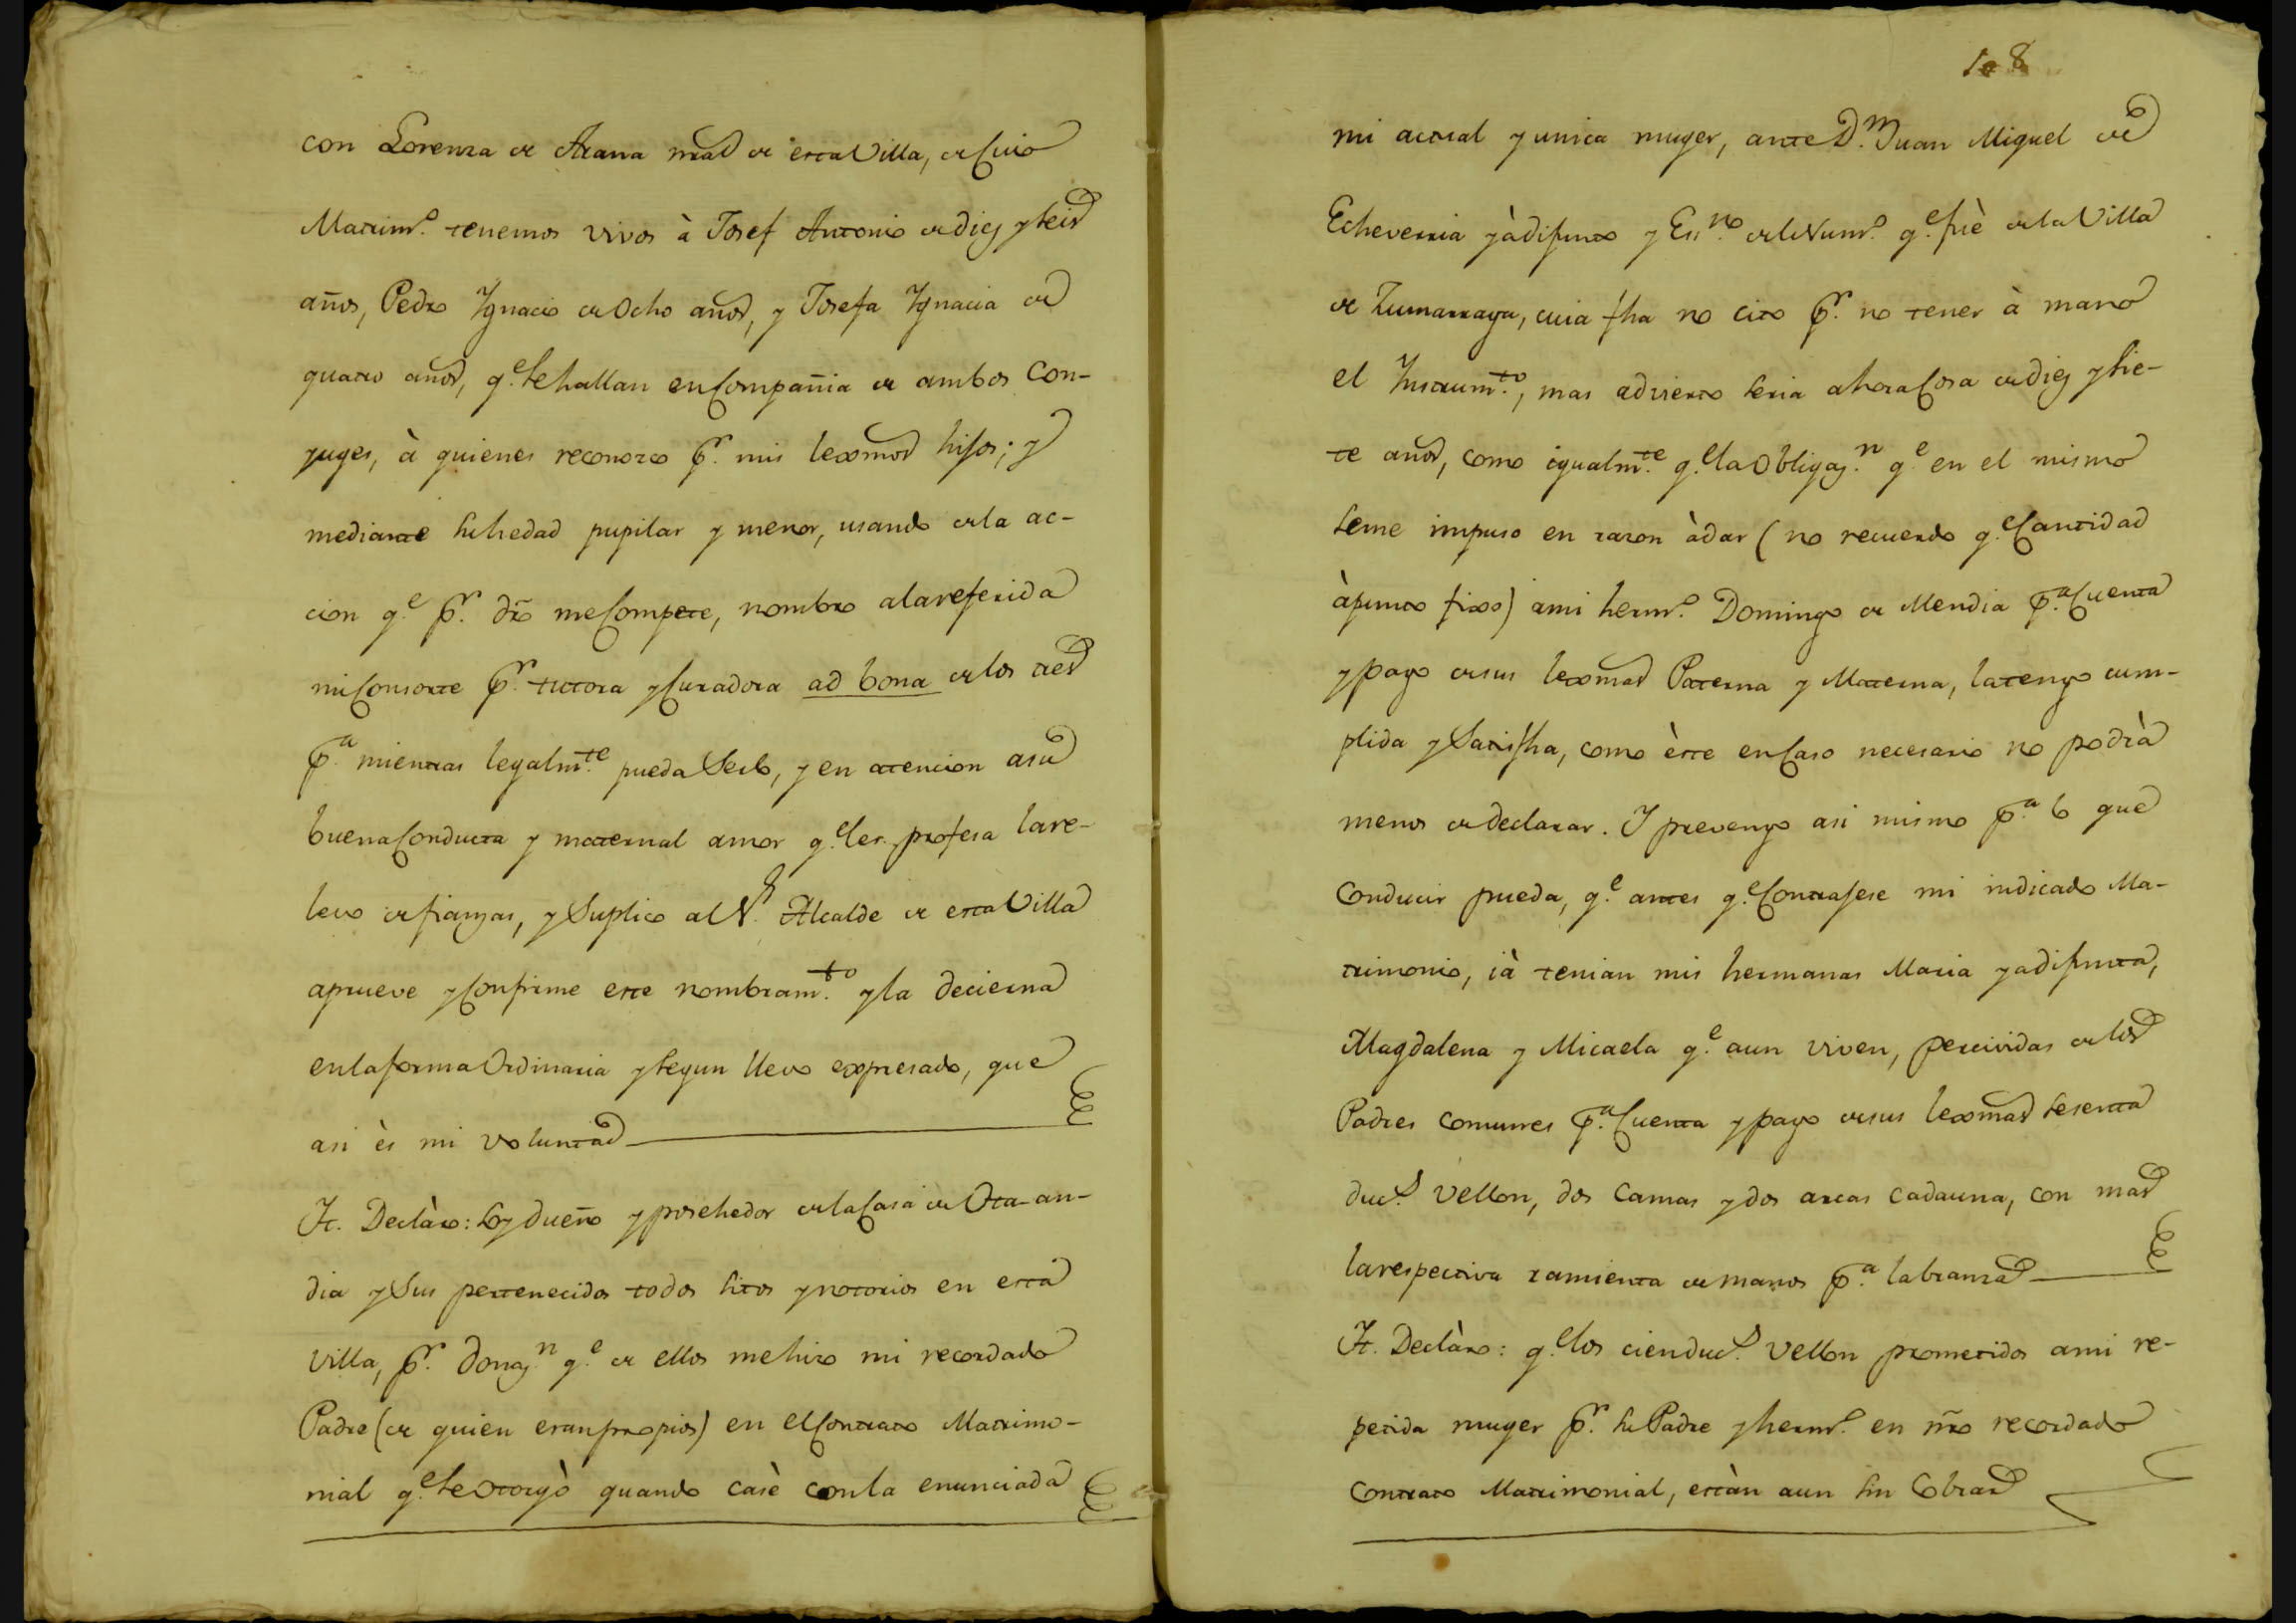 con Lorenza de Arana nral de esta Villa, de Cuio
Matrimº. tenemos vivos à Josef Antonio de diez y seis
años, Pedro Ygnacio de Ocho años, y Josefa Ygnacia de
quatro años, q.e se hallan en Compañia de ambos Con-
yuges, à quienes reconozco p.r mis lexmos hijos; y
mediante su hedad pupilar y menor, usando de la ac-
cion q.e p.r dr̃o me Compete, nombro a la referida
mi Consorte p.r tutora y Curadora ad bona de los tres
p.a mientras legalm.te pueda Serlo, y en atencion a su
buena Conducta y maternal amor q.e les profesa la re-
levo de fianzas, y Suplico al S.r Alcalde de esta Villa
aprueve y Confirme este nombram.to y la decierna
en la forma Ordinaria y segun llevo expresado, que
asi ès mi voluntad
It. Declàro: soy dueño y posehedor de la Casa de Ota-an-
dia y Sus pertenecidos todos sitos y notorios en esta
Villa, p.r donaz.n q.e de ellos me hizo mi recordado
Padre (de quien eran propios) en el Contrato Matrimo-
nial q.e se Otorgò quando casè con la enunciada
108
mi actual y unica muger, ante D.n Juan Miguel de
Echeverria yà difunto y Es.no del Numº. q.e fuè de la Villa
de Zumarraga, cuia fha no cito p.r no tener à mano
el Instrum.to, mas advierto seria ahora Cosa de diez y sie-
te años, como igualm.te q.e la Obligaz.n q.e en el mismo
se me impuso en razon à dar (no recuerdo q.e Cantidad
à punto fixo) a mi hermº. Domingo de Mendia p.a Cuenta
y pago de sus lexmas Paterna y Materna, la tengo cum-
plida y Satisfha, como èste en Caso necesario no podrà
menos de declarar. Y prevengo asi mismo p.a lo que
Conducir pueda, q.e antes q.e Contrajese mi indicado Ma-
trimonio, ià tenian mis hermanas Maria ya difunta,
Magdalena y Micaela q.e aun viven, percividas de los
Padres comunes p.a Cuenta y pago de sus lexmas sesenta
duc.s vellon, dos Camas y dos arcas cada una, con mas
la respectiva ramienta de manos p.a labranza
It. Declàro: q.e los cien duc.s vellon prometidos a mi re-
petida muger p.r su Padre y hermº. en nr̃o recordado
Contrato Matrimonial, estàn aun sin Cobrar